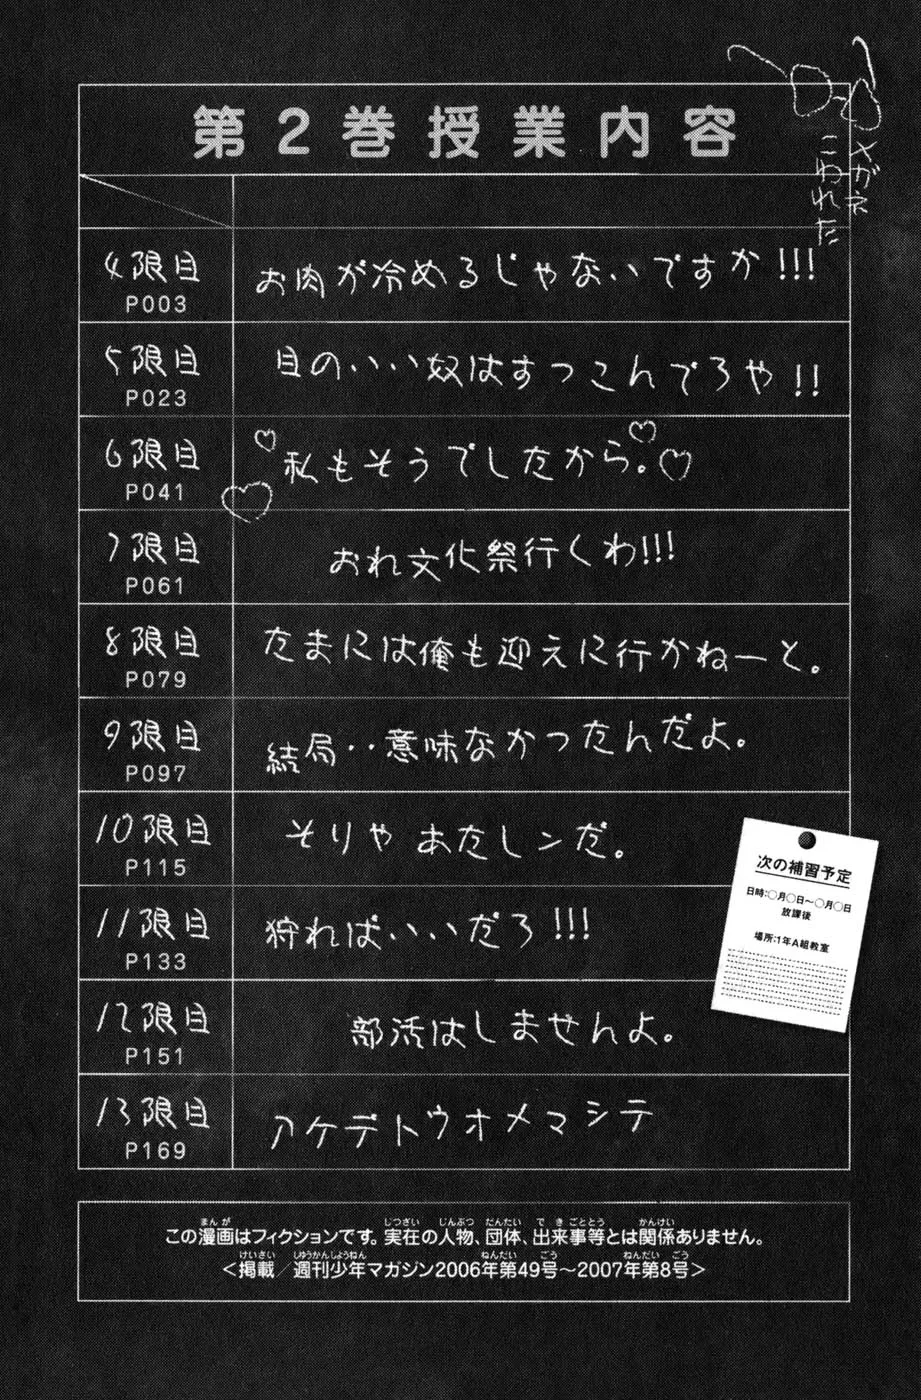 第2巻授業内容
メガネ
こわれた
4限目
P003
お肉が冷めるじゃないですか!!!
5限目
P023
目のいい奴はすっこんでろや!!
6限目
P041
私もそうでしたから。
7限目
P061
おれ文化祭行くわ!!!
8限目
P079
たまには俺も迎えに行かねーと。
9限目
P097
結局‥意味なかったんだよ。
10限目
P115
そりゃ あたしンだ。
11限目
P133
狩ればいいだろ!!!
12限目
P151
部活はしませんよ。
13限目
P169
アケデトウオメマシテ
次の補習予定
日時:○月○日～○月○日
放課後
場所:1年A組教室
この漫画はフィクションです。実在の人物、団体、出来事等とは関係ありません。
<掲載／週刊少年マガジン2006年第49号～2007年第8号>